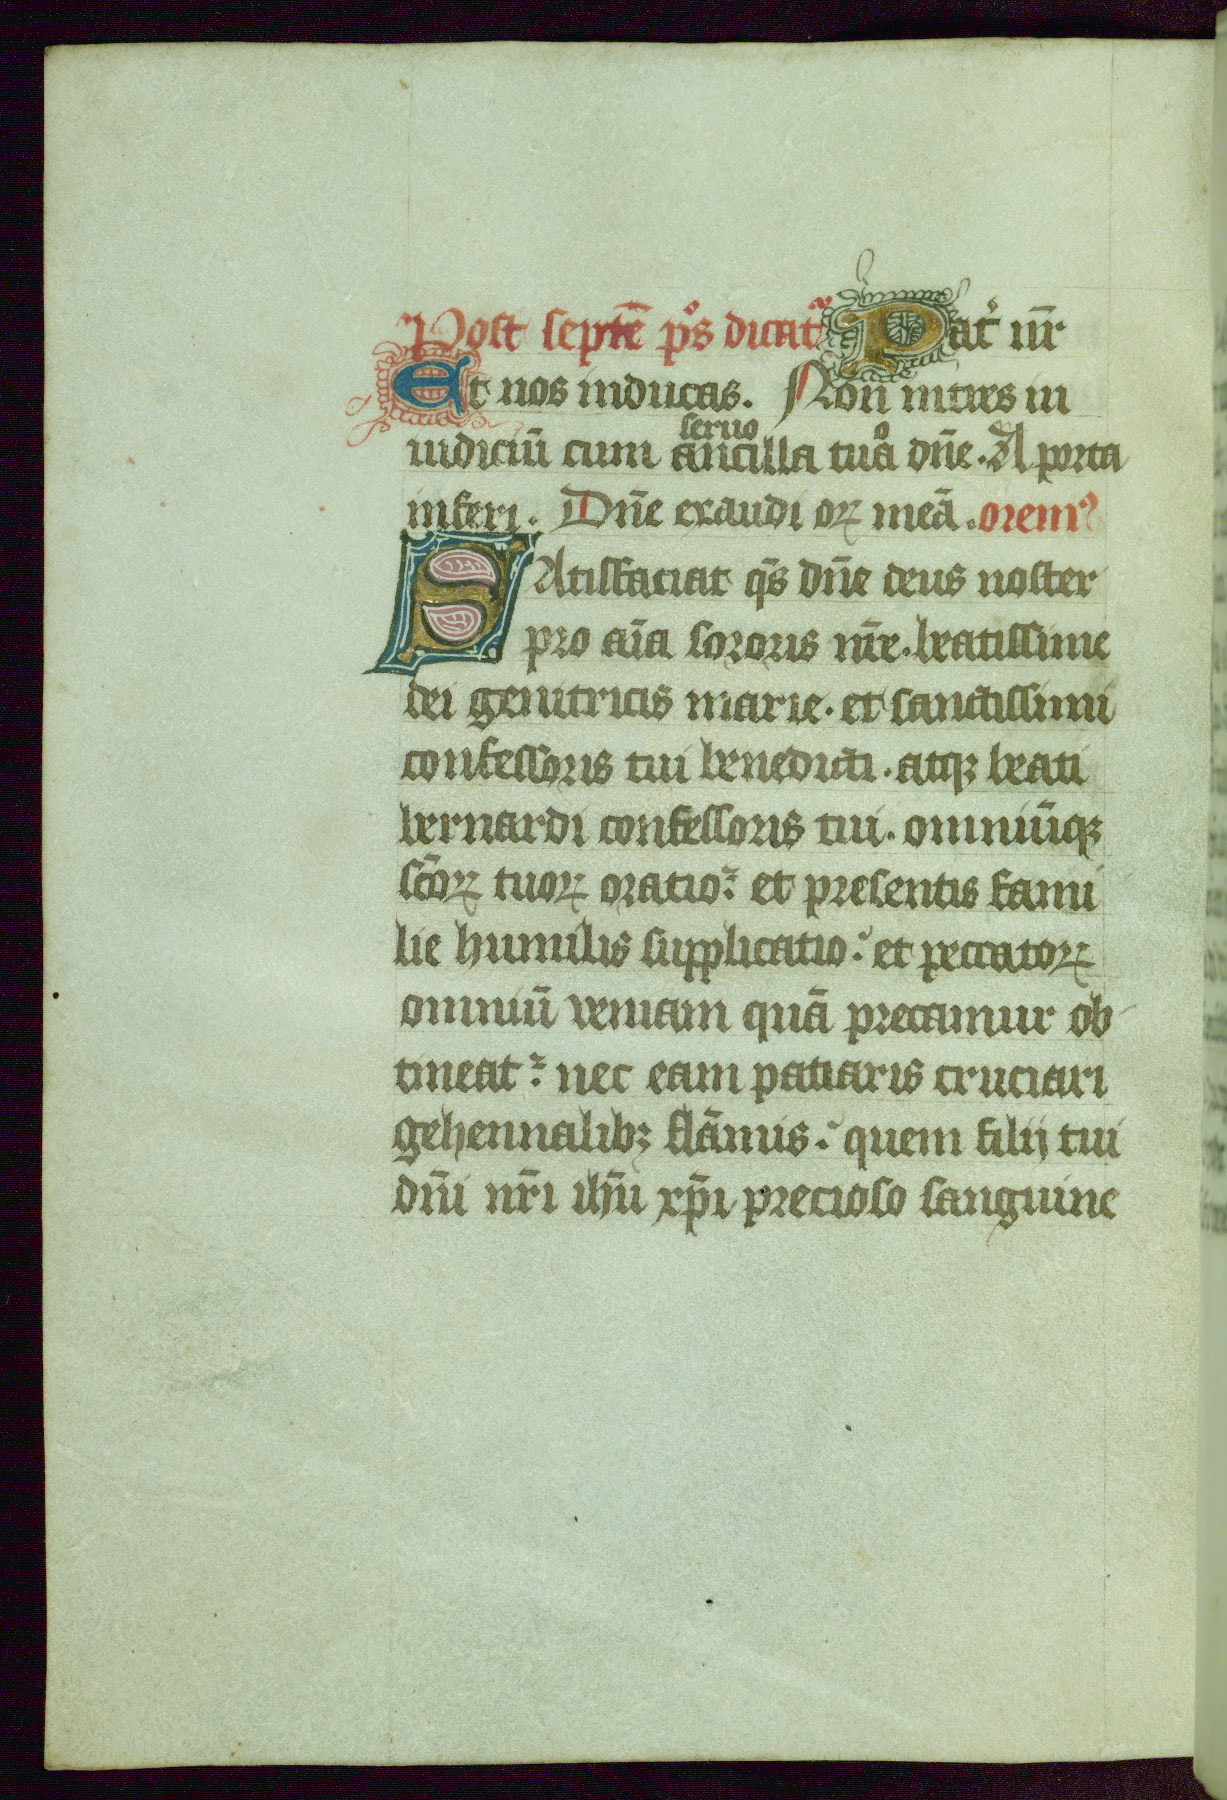 Post septē p̄s dicat᷑ Pat᷑ nr̄
Et nos inducas. Non intres in
seruo
iudiciū cum ancilla tuaͦ dn̄e. A porta
inferi. Dn̄e exaudi orꝝ meā. orem᷒
SAtisfaciat qs̄ dn̄e deus noster
pro aīa sororis nr̄e. beatissime
dei genitricis marie. et sanctissimi
confessoris tui benedicti. atqꝫ beati
bernardi confessoris tui. omniūqꝫ
scōꝝ tuoꝝ oratio: et presentis fami
lie humilis supplicatio: et peccatoꝝ
omniū veniam quā precamur ob
tineat: nec eam patiaris cruciari
gehennalibꝫ flāmis: quem filij tui
dn̄i nr̄i ih̄u xp̄i precioso sanguine